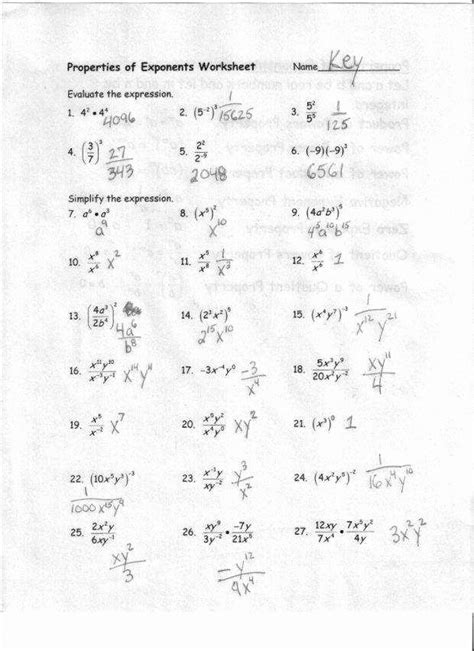 Properties of Exponents Worksheet Name Key
Evaluate the expression.
1. 4² • 4⁴ 4096 2. (5⁻²)³ 15625 3. 5²/5⁵ 1/125
4. (3/7)³ 27/343 5. 2²/2⁻⁹ 2048 6. (-9)(-9)³ 6561
Simplify the expression.
7. a⁶ • a³ a⁹ 8. (x⁵)² x¹⁰ 9. (4a²b³)⁵ 4⁵a¹⁰b¹⁵
10. x⁸/x⁶ x² 11. x⁵/x⁸ 1/x³ 12. x⁶/x⁶ 1
13. (4a³/2b⁴)² 4a⁶/b⁸ 14. (2³x²)⁵ 2¹⁵x¹⁰ 15. (x⁴y⁷)⁻³ 1/x¹²y²¹
16. x¹¹y¹⁰/x⁻³y⁻¹ x¹⁴y¹¹ 17. -3x⁻⁴y⁰ -3/x⁴ 18. 5x³y⁹/20x²y⁻² xy¹¹/4
19. x⁵/x⁻² x⁷ 20. x⁵y²/x⁴y⁰ xy² 21. (x³)⁰ 1
22. (10x⁵y³)⁻³ 1/1000x¹⁵y⁹ 23. x⁻¹y/xy⁻² y³/x² 24. (4x²y⁵)⁻² 1/16x⁴y¹⁰
25. 2x²y/6xy⁻¹ xy²/3 26. xy⁹/3y⁻² • -7y/21x⁵ -y¹²/9x⁴ 27. 12xy/7x⁴ • 7x⁵y²/4y 3x²y²